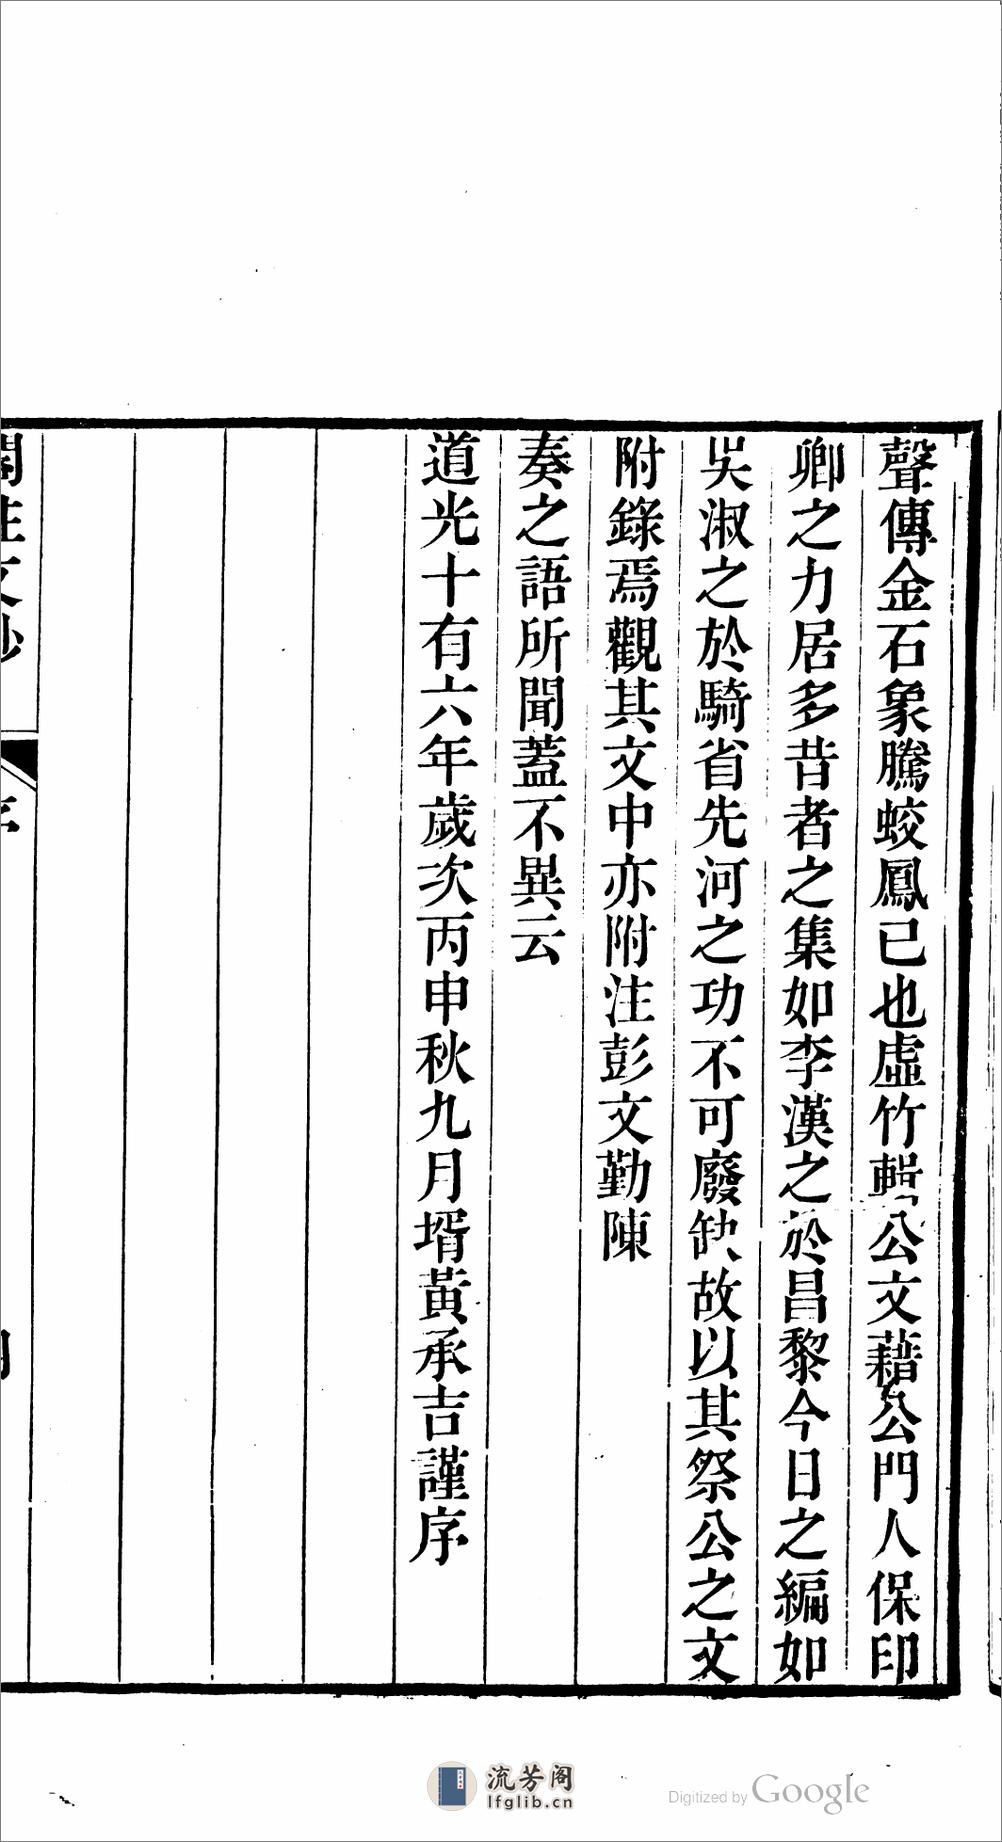 聲傳金石象騰蛟鳳已也虛竹輯公文藉公門人保印
卿之力居多昔者之集如李漢之於昌黎今日之編如
吳淑之於騎省先河之功不可廢缺故以其祭公之文
附錄焉觀其文中亦附注彭文勤陳
奏之語所聞蓋不異云
道光十有六年歲次丙申秋九月壻黃承吉謹序
流芳阁
lfglib.cn
Digitized by Google